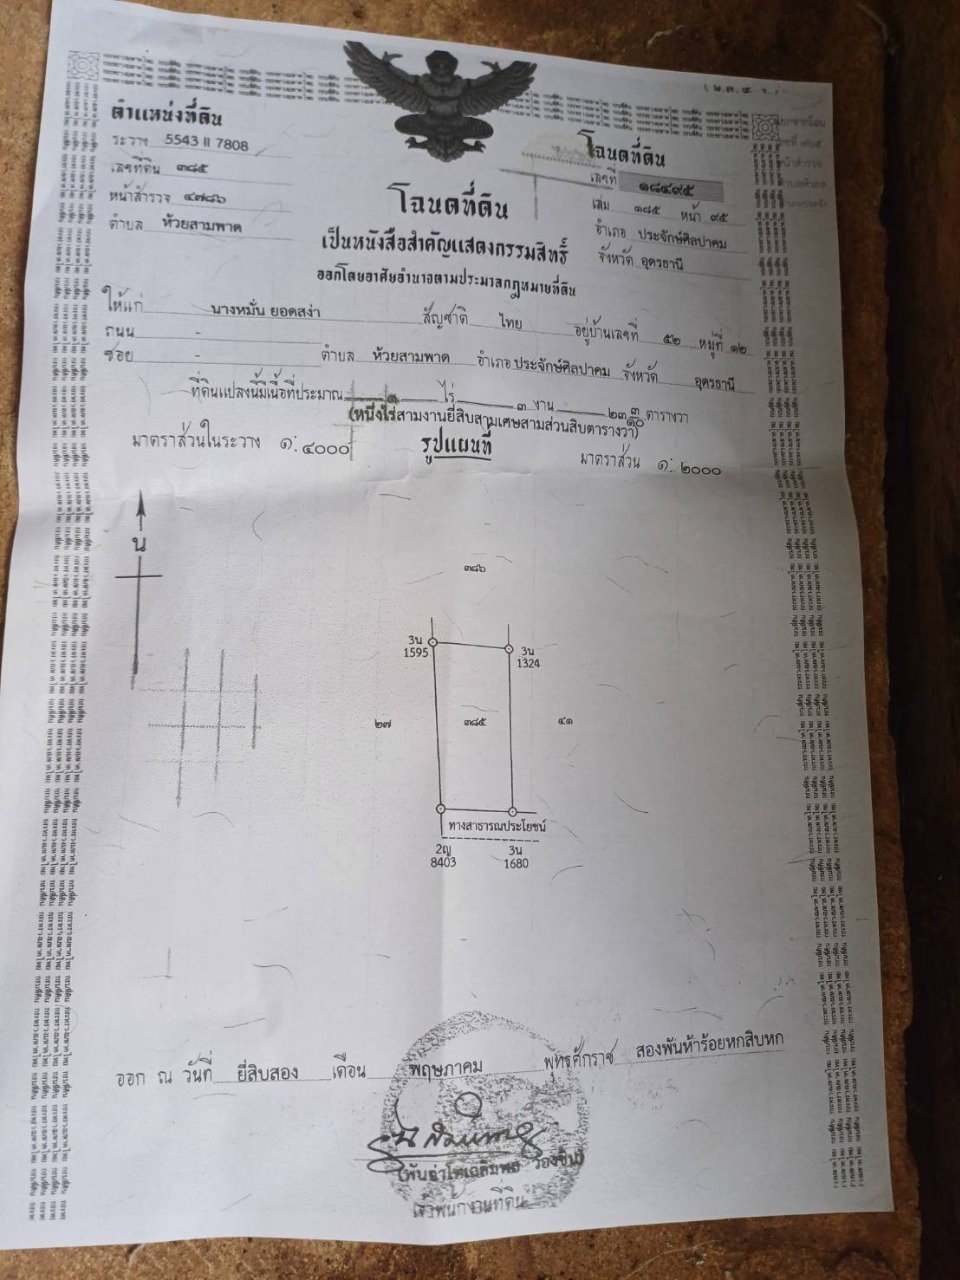 (น.ส.๔ จ.)
ตำแหน่งที่ดิน
ระวาง 5543 II 7808
เลขที่ดิน ๓๘๕
หน้าสำรวจ ๔๗๘๖
ตำบล ห้วยสามพาด
โฉนดที่ดิน
เลขที่ ๑๘๔๙๕
เล่ม ๑๘๕ หน้า ๙๕
อำเภอ ประจักษ์ศิลปาคม
จังหวัด อุดรธานี
โฉนดที่ดิน
เป็นหนังสือสำคัญแสดงกรรมสิทธิ์
ออกโดยอาศัยอำนาจตามประมวลกฎหมายที่ดิน
ให้แก่ นางหมั่น ยอดสง่า สัญชาติ ไทย อยู่บ้านเลขที่ ๕๒ หมู่ที่ ๑๒
ถนน -
ซอย - ตำบล ห้วยสามพาด อำเภอ ประจักษ์ศิลปาคม จังหวัด อุดรธานี
ที่ดินแปลงนี้มีเนื้อที่ประมาณ ๑ ไร่ ๓ งาน ๒๓ ๓/๑๐ ตารางวา
(หนึ่งไร่สามงานยี่สิบสามเศษสามส่วนสิบตารางวา)
มาตราส่วนในระวาง ๑:๔๐๐๐
รูปแผนที่
มาตราส่วน ๑:๒๐๐๐
น
๓๘๖
3น
1595
3น
1324
๒๗
๓๘๕
๔๑
ทางสาธารณประโยชน์
2ญ
8403
3น
1680
ออก ณ วันที่ ยี่สิบสอง เดือน พฤษภาคม พุทธศักราช สองพันห้าร้อยหกสิบหก
เจ้าพนักงานที่ดิน